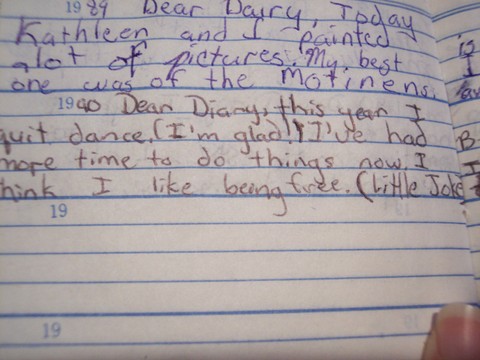 1989 Dear Dairy, Today
Kathleen and I painted
alot of pictures. My best
one was of the Motinens.
1990 Dear Diary, this year I
quit dance. (I'm glad!) I've had
more time to do things now. I
think I like being free. (Little Joke
19
19